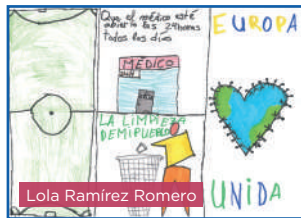 Que el médico esté
abierto las 24 horas
todos los días
MÉDICO
LA LIMPIEZA
DEMIPUEBLO
EUROPA
UNIDA
Lola Ramírez Romero